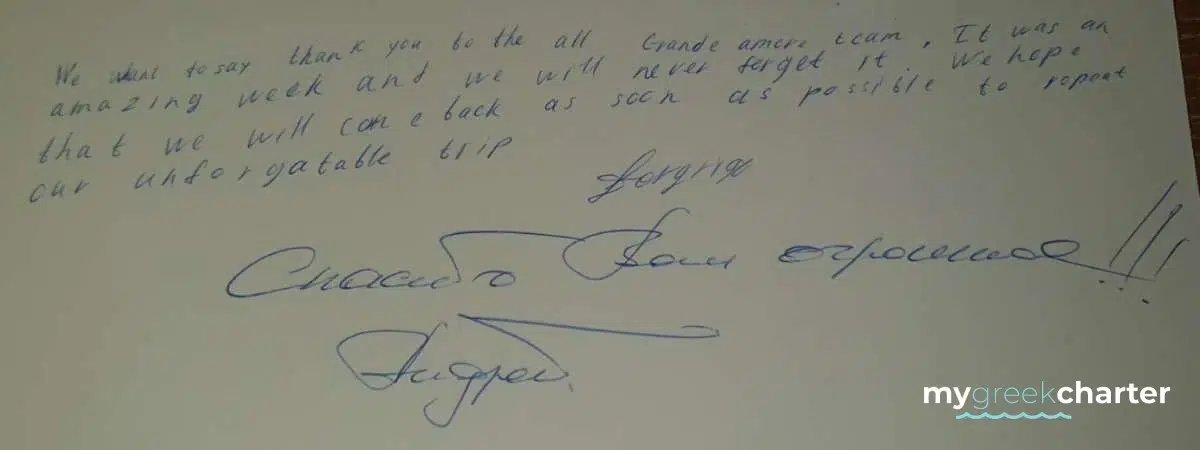 We want to say thank you to the all Grande amore team. It was an
amazing week and we will never forget it. We hope
that we will come back as soon as possible to repeat
our unforgatable trip
Спасибо Вам огромное!!!
Андрей.
mygreekcharter